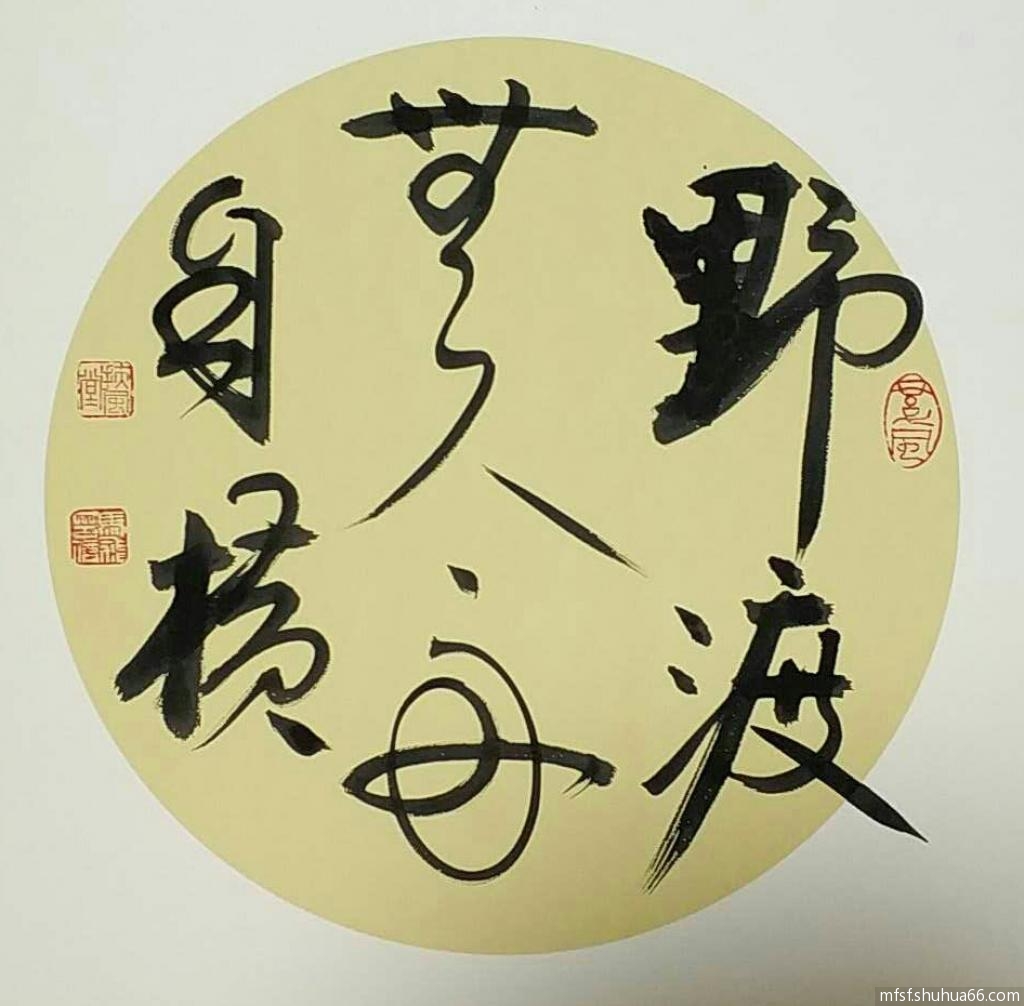 野渡
無人舟
自横
mfsfshuhua66.com